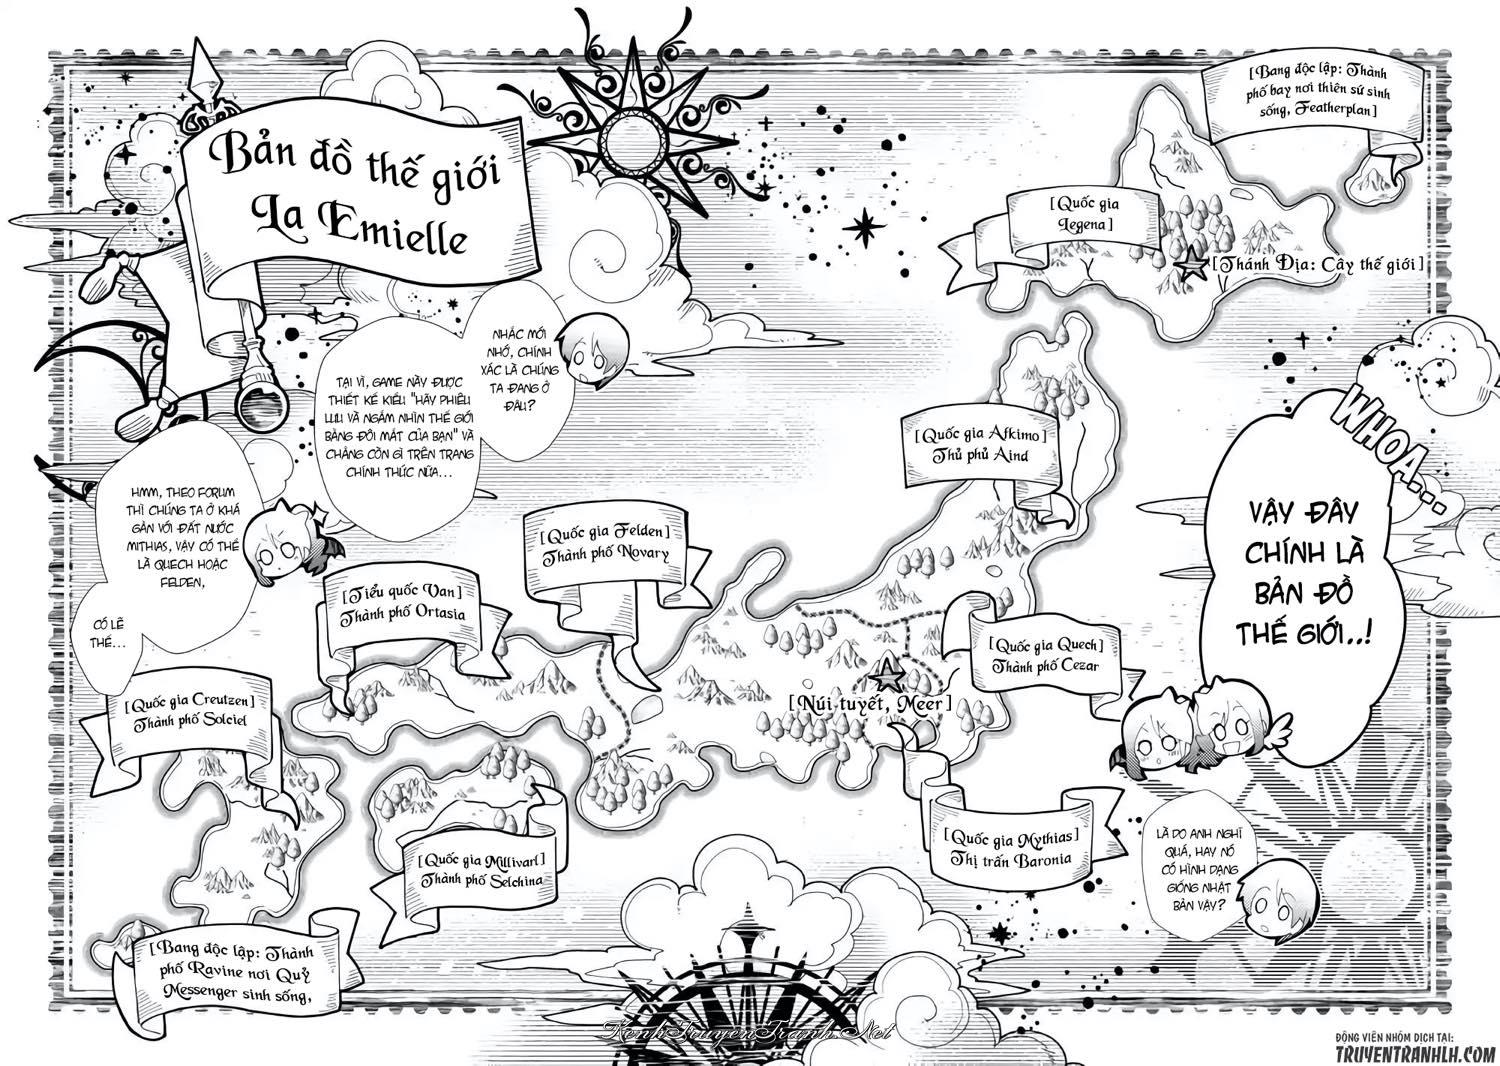 Bản đồ thế giới
La Emielle
[Bang độc lập: Thành
phố bay nơi thiên sứ sinh
sống, Featherplan]
[Quốc gia
Legena]
[Thánh Địa: Cây thế giới]
WHOA...
VẬY ĐÂY
CHÍNH LÀ
BẢN ĐỒ
THẾ GIỚI..!
LÀ DO ANH NGHĨ
QUÁ, HAY NÓ
CÓ HÌNH DẠNG
GIỐNG NHẬT
BẢN VẬY?
NHẮC MỚI
NHỚ, CHÍNH
XÁC LÀ CHÚNG
TA ĐANG Ở
ĐÂU?
TẠI VÌ, GAME NÀY ĐƯỢC
THIẾT KẾ KIỂU "HÃY PHIÊU
LƯU VÀ NGẮM NHÌN THẾ GIỚI
BẰNG ĐÔI MẮT CỦA BẠN" VÀ
CHẲNG CÒN GÌ TRÊN TRANG
CHÍNH THỨC NỮA...
HMM, THEO FORUM
THÌ CHÚNG TA Ở KHÁ
GẦN VỚI ĐẤT NƯỚC
MITHIAS, VẬY CÓ THỂ
LÀ QUECH HOẶC
FELDEN,
CÓ LẼ
THẾ...
[Quốc gia Afkimo]
Thủ phủ Aind
[Quốc gia Felden]
Thành phố Novary
[Tiểu quốc Van]
Thành phố Ortasia
[Quốc gia Quech]
Thành phố Cezar
[Núi tuyết, Meer]
[Quốc gia Creutzen]
Thành phố Solciel
[Quốc gia Millivarl]
Thành phố Selchina
[Quốc gia Mythias]
Thị trấn Baronia
[Bang độc lập: Thành
phố Ravine nơi Quỷ
Messenger sinh sống,
KenhTruyenTranh.Net
ĐỘNG VIÊN NHÓM DỊCH TẠI:
TRUYENTRANHLH.COM